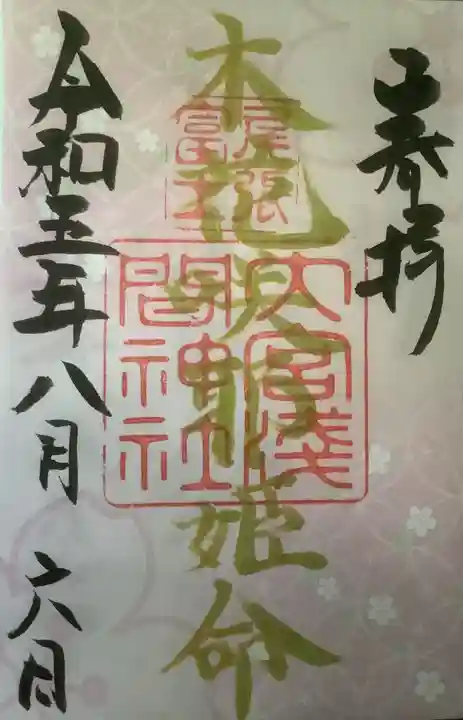 奉拝
木花
姫命
尾張
富士
大宮浅
間神社
令和五年八月六日